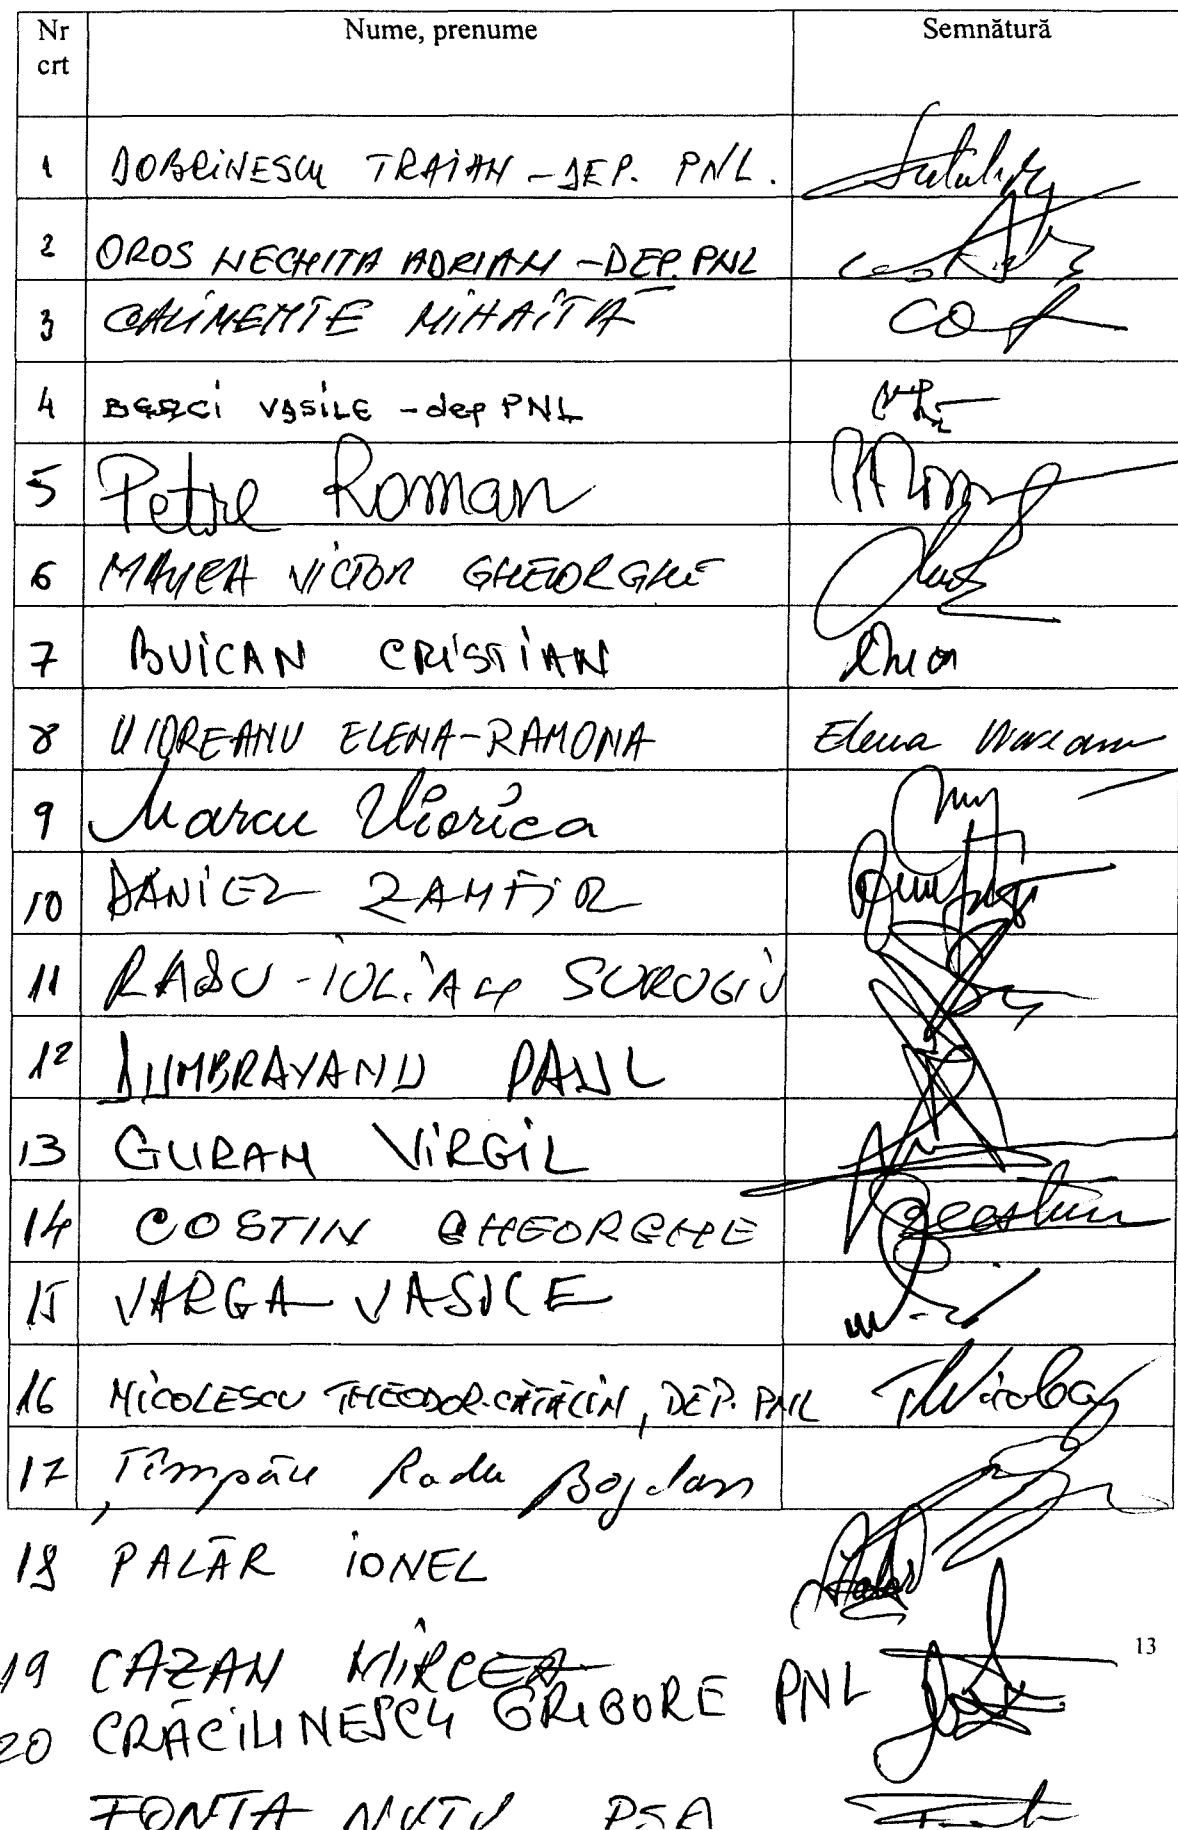 Nr crt Nume, prenume Semnătură
1 DOBRINESCU TRAIAN - DEP. PNL.
2 OROS NECHITA ADRIAN - DEP. PNL
3 CALIMENTE MIHĂIȚĂ
4 BERCI VASILE - dep PNL
5 Petre Roman
6 MANEA VICTOR GHEORGHE
7 BUICAN CRISTIAN
8 UIOREANU ELENA-RAMONA Elena Uioreanu
9 Marcu Viorica
10 DANIEL ZAMFIR
11 RADU-IULIAN SURUGIU
12 DUMBRAVANU PAUL
13 GURAN VIRGIL
14 COSTIN GHEORGHE
15 VARGA VASILE
16 NICOLESCU THEODOR-CĂTĂLIN, DEP. PNL
17 Țîmpău Radu Bogdan
18 PALĂR IONEL
19 CAZAN MIRCEA
20 CRĂCIUNESCU GRIGORE PNL
13
FONTA NUȚU PSA